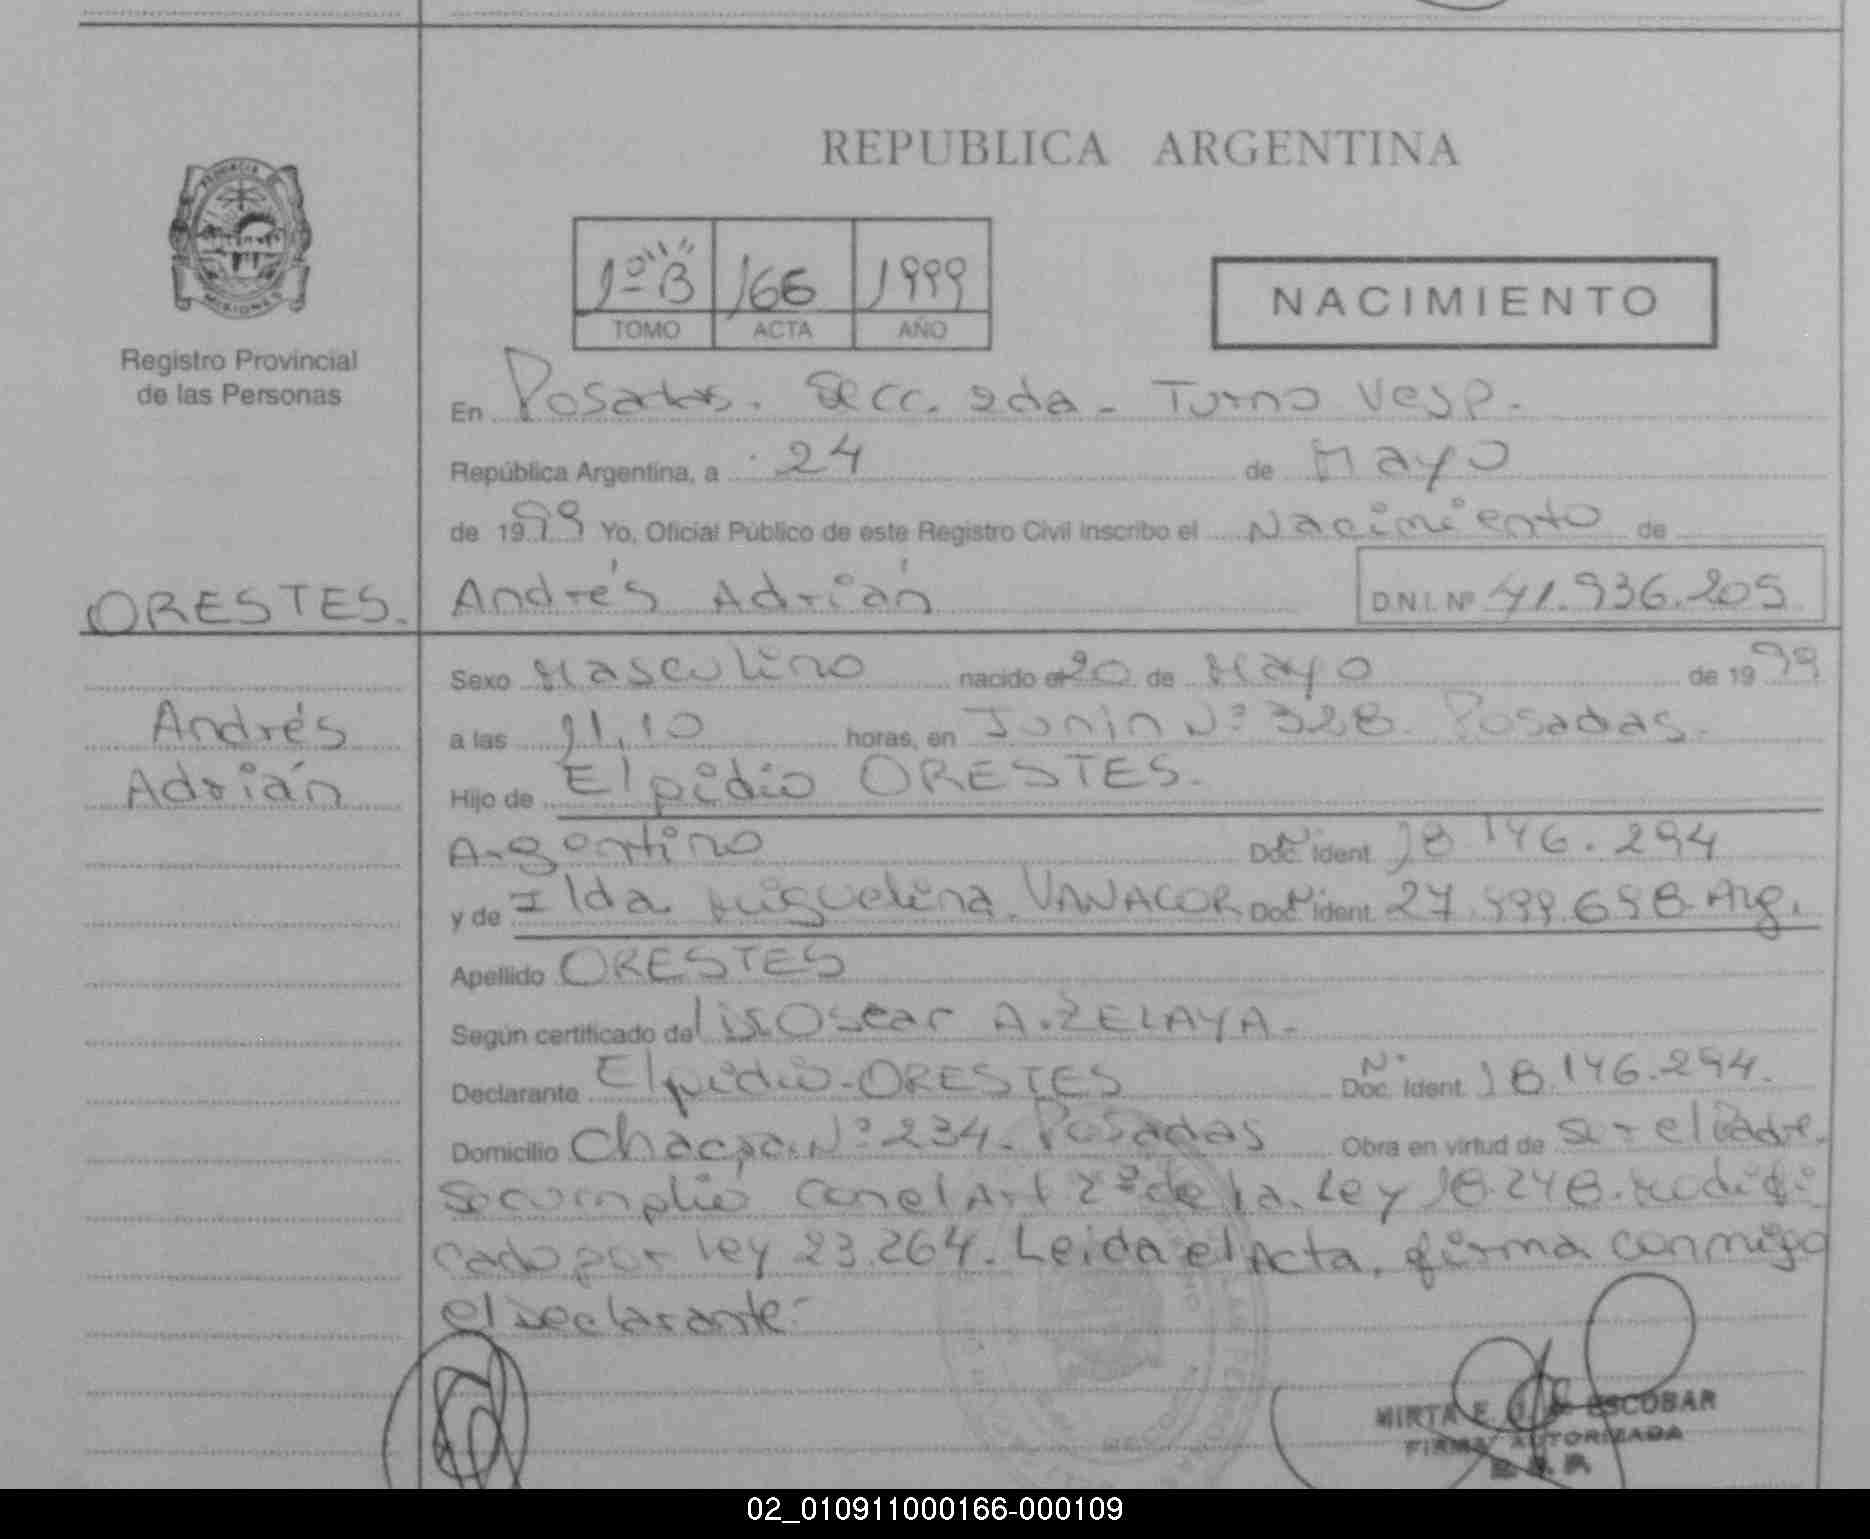 REPUBLICA ARGENTINA
PROVINCIA DE
MISIONES
Registro Provincial
de las Personas
1º "B" 166 1999
TOMO ACTA AÑO
NACIMIENTO
En Posadas. Secc. 2da - Turno Vesp.
República Argentina, a 24 de Mayo
de 1999 Yo, Oficial Público de este Registro Civil inscribo el Nacimiento de
ORESTES. Andrés Adrián D.N.I. Nº 41.936.205
Sexo Masculino nacido el 20 de Mayo de 1999
Andrés a las horas, en Junin Nº 328. Posadas.
Adrián Hijo de Elpidio ORESTES.
Argentino Doc. Ident. Nº 18.146.294
y de Ilda Miguelina VANACOR Doc. Ident. Nº 27.999.698 Arg.
Apellido ORESTES
Según certificado de Oscar A. ZELAYA.
Declarante Elpidio ORESTES Doc. Ident. Nº 18.146.294.
Domicilio Chacra Nº 234. Posadas Obra en virtud de ser el Padre.
Se cumplió con el Art 2º de la Ley 18.248. Modifi
cado por Ley 23.264. Leida el Acta, firma conmigo
el Declarante.
MIRTA E. ESCOBAR
FIRMA AUTORIZADA
02_010911000166-000109